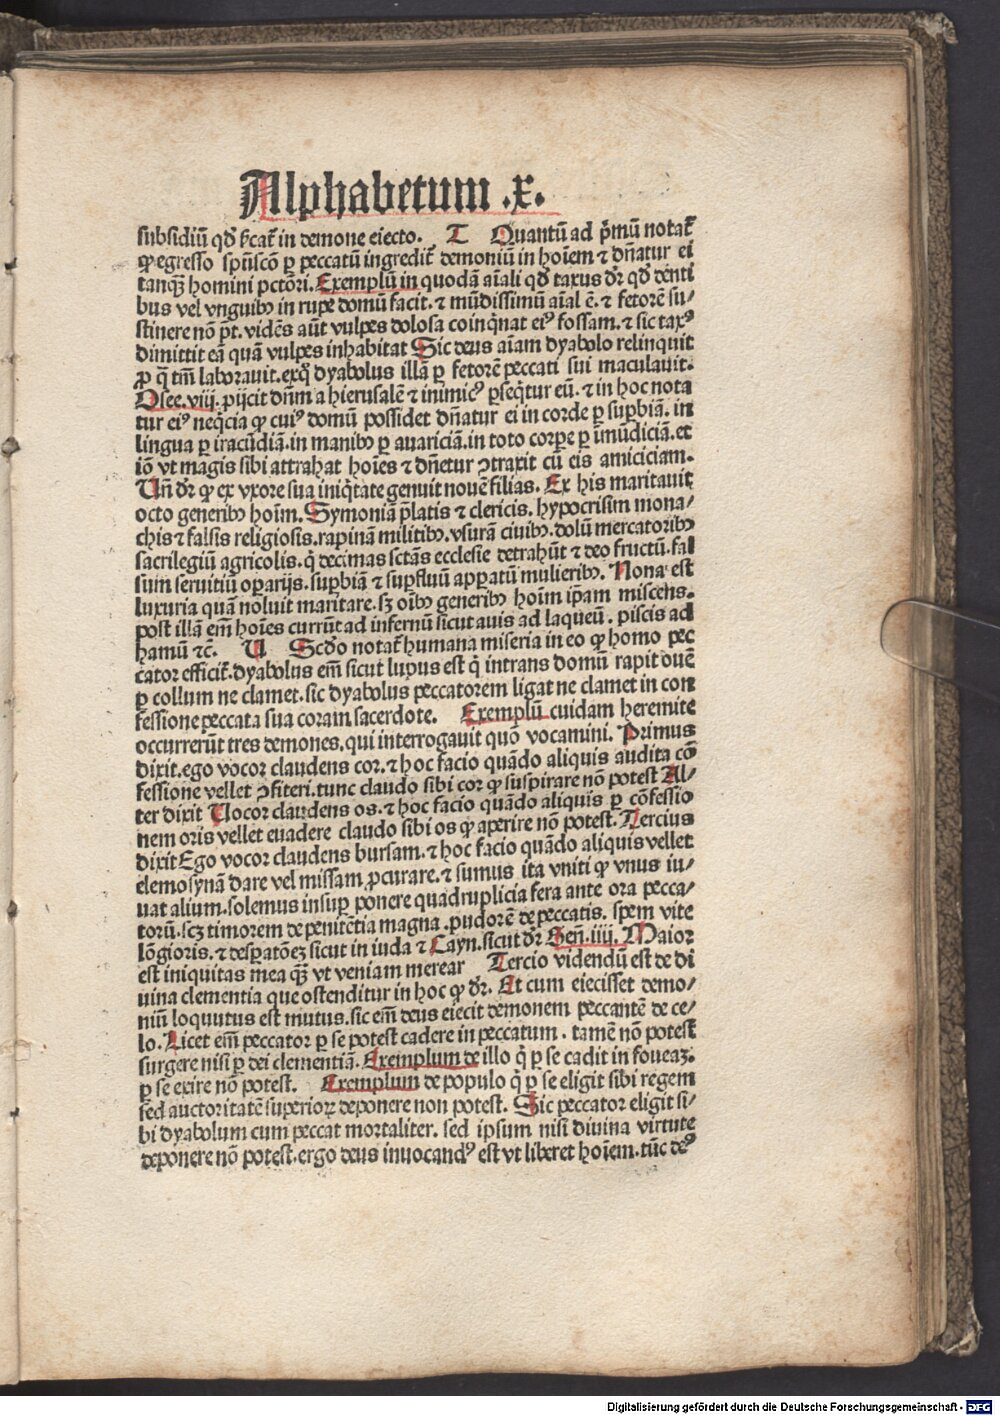 Alphabetum .x.
subsidiū qd̄ ſicat̄ in demone eiecto. T Quantū ad p̄mū notat̄
ꝙ egresso spūscō ꝑ peccatū ingredit̄ demoniū in hoīem ⁊ dn̄atur ei
tanqꝫ homini pctōri. Exemplū in quodā aīali qd̄ taxus dr̄ qd̄ denti
bus vel vnguibꝰ in rupe domū facit. ⁊ mūdissimū aīal ē. ⁊ fetorē su/
stinere nō pt̄. vidēs aūt vulpes dolosa coinq̄nat eiꝰ fossam. ⁊ sic taxꝰ
dimittit eā quā vulpes inhabitat Sic deus aīam dyabolo relinquit
ꝓ q̄ tm̄ laborauit. exq̊ dyabolus illā ꝑ fetorē peccati sui maculauit.
Osee. viij. ꝓijcit dn̄m a hierusalē ⁊ inimicꝰ ꝑseq̄tur eū. ⁊ in hoc nota
tur eiꝰ neq̄cia ꝙ cuiꝰ domū possidet dn̄atur ei in corde ꝑ suꝑbiā. in
lingua ꝑ iracūdiā. in manibꝰ ꝑ auariciā. in toto corꝑe ꝑ īmūdiciā. et
iō vt magis sibi attrahat hoīes ⁊ dn̄etur ꝯtraxit cū eis amiciciam.
Un̄ dr̄ ꝙ ex vxore sua iniq̄tate genuit nouē filias. Ex his maritauit
octo generibꝰ hoīm. Symoniā p̄latis ⁊ clericis. hypocrisim mona/
chis ⁊ falsis religiosis. rapinā militibꝰ. vsurā ciuibꝰ. dolū mercatoribꝰ
sacrilegiū agricolis. q̄ decimas sctās ecclesie detrahūt ⁊ deo fructū. fal
sum seruitiū oꝑarijs. suꝑbiā ⁊ suꝑfluū apꝑatū mulieribꝰ. Nona est
luxuria quā noluit maritare. sꝫ oībꝰ generibꝰ hoīm ip̄am miscens.
post illā em̄ hoīes currūt ad infernū sicut auis ad laqueū. piscis ad
hamū ⁊c̄. U Scd̄o notat̄ humana miseria in eo ꝙ homo pec
cator efficit̄. dyabolus em̄ sicut lupus est q̄ intrans domū rapit ouē
ꝑ collum ne clamet. sic dyabolus peccatorem ligat ne clamet in con
fessione peccata sua coram sacerdote. Exemplū cuidam heremite
occurrerūt tres demones. qui interrogauit quō vocamini. Primus
dixit. ego vocor claudens cor. ⁊ hoc facio quādo aliquis audita cō
fessione vellet ꝯfiteri. tunc claudo sibi cor ꝙ suspirare nō potest Al/
ter dixit Uocor claudens os. ⁊ hoc facio quādo aliquis ꝑ cōfessio
nem oris vellet euadere claudo sibi os ꝙ aperire nō potest. Tercius
dixit Ego vocor claudens bursam. ⁊ hoc facio quādo aliquis vellet
elemosynā dare vel missam ꝓcurare. ⁊ sumus ita vniti ꝙ vnus iu/
uat alium. solemus insuꝑ ponere quadruplicia fera ante ora pecca/
torū. scꝫ timorem de penitētia magna. pudorē de peccatis. spem vite
lōgioris. ⁊ desꝑatōeꝫ sicut in iuda ⁊ Cayn. sicut dr̄ Gen̄. iiij. Maior
est iniquitas mea qꝫ vt veniam merear Tercio videndū est de di
uina clementia que ostenditur in hoc ꝙ dr̄. Et cum eiecisset demo/
niū loquutus est mutus. sic em̄ deus eiecit demonem peccantē de ce/
lo. Licet em̄ peccator ꝑ se potest cadere in peccatum. tamē nō potest
surgere nisi ꝑ dei clementiā. Exemplum de illo q̄ ꝑ se cadit in foueaꝫ.
ꝑ se exire nō potest. Exemplum de populo q̄ ꝑ se eligit sibi regem
sed auctoritatē superioꝝ deponere non potest. Sic peccator eligit si/
bi dyabolum cum peccat mortaliter. sed ipsum nisi diuina virtute
deponere nō potest. ergo deus inuocandꝰ est vt liberet hoīem. tūc deꝰ
Digitalisierung gefördert durch die Deutsche Forschungsgemeinschaft - DFG